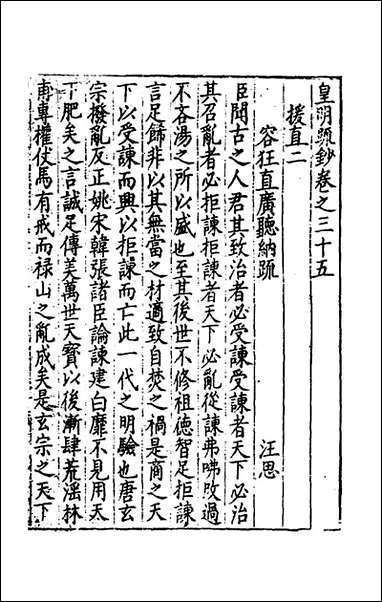 皇明疏鈔卷之三十五
援直二
容狂直廣聽納疏 汪思
臣聞古之人君其致治者必受諫受諫者天下必治
其召亂者必拒諫拒諫者天下必亂從諫弗咈改過
不吝湯之所以盛也至其後世不修祖德智足拒諫
言足餙非以其無當之材適致自焚之禍是商之天
下以受諫而興以拒諫而亡此一代之明驗也唐玄
宗撥亂反正姚宋韓張諸臣論諫建白靡不見用天
下肥矣之言誠足傳美萬世天寳以後漸肆荒滛林
甫專權仗馬有戒而禄山之亂成矣是玄宗之天下